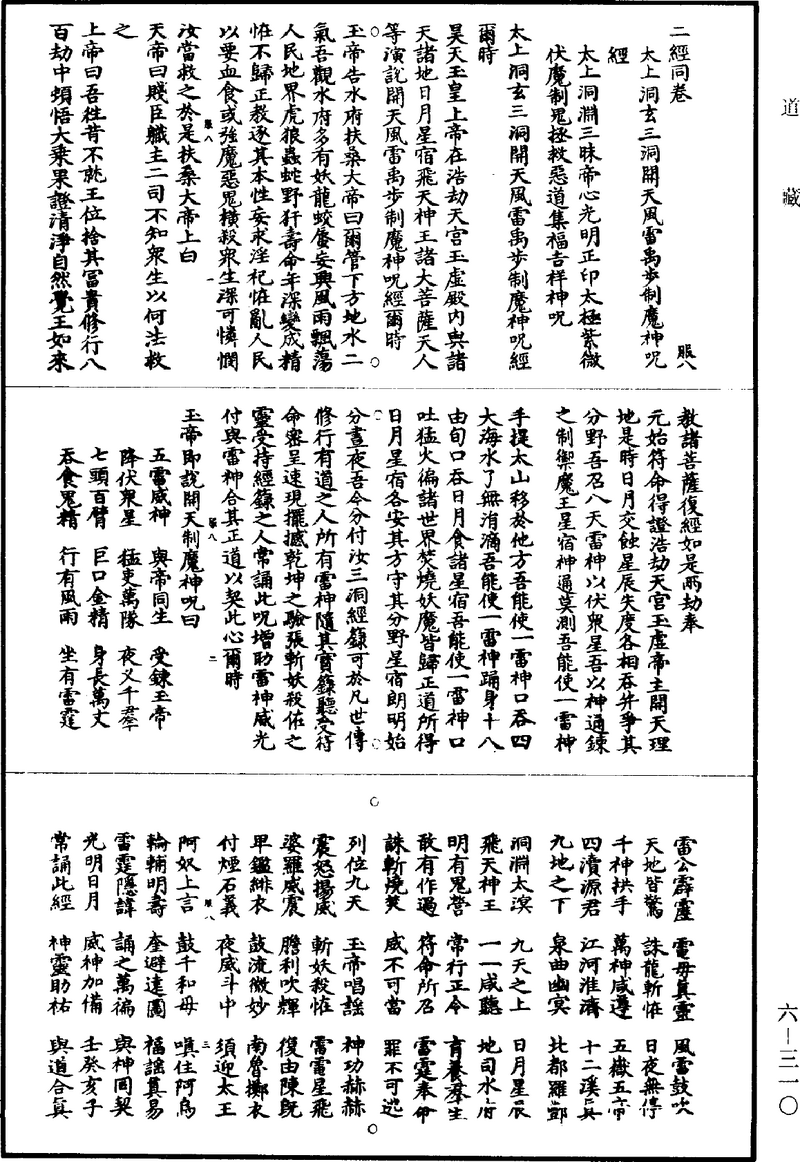 道藏
二經同卷
服八
太上洞玄三洞開天風雷禹步制魔神呪
經
太上洞淵三昧帝心光明正印太極紫微
伏魔制鬼拯救惡道集福吉祥神呪
太上洞玄三洞開天風雷禹步制魔神呪經
爾時
昊天玉皇上帝在浩劫天宮玉虛殿內與諸
天諸地日月星宿飛天神王諸大菩薩天人
等演說開天風雷禹步制魔神呪經爾時
玉帝告水府扶桑大帝曰爾管下方地水二
氣吾觀水府多有妖龍蛟蜃妄興風雨飄蕩
人民地界虎狼蟲蛇野犴壽命年深變成精
恠不歸正教逐其本性妄求淫祀恠亂人民
以要血食或強魔惡鬼橫殺眾生深可憐憫
汝當救之於是扶桑大帝上白
天帝曰賤臣職主二司不知眾生以何法救
之
上帝曰吾往昔不就王位捨其富貴修行八
百劫中頓悟大乘果證清淨自然覺王如來
教諸菩薩復經如是兩劫奉
元始符命得證浩劫天宮玉虛帝主開天理
地是時日月交蝕星辰失度各相吞并爭其
分野吾召八天雷神以伏眾星吾以神通鍊
之制禦魔王星宿神通莫測吾能使一雷神
手提太山移於他方吾能使一雷神口吞四
大海水了無涓滴吾能使一雷神踊身十八
由旬口吞日月食諸星宿吾能使一雷神口
吐猛火徧諸世界焚燒妖魔皆歸正道所得
日月星宿各安其方守其分野星宿朗明始
分晝夜吾今分付汝三洞經籙可於凡世傳
修行有道之人所有雷神隨其寶籙聽受符
命密呈速現擺撼乾坤之驗張斬妖殺佐之
靈受持經籙之人常誦此呪增助雷神威光
付與雷神合其正道以契此心爾時
服八
二
玉帝即說開天制魔神呪曰
五雷威神 與帝同生 受鍊玉帝
降伏眾星 猛吏萬隊 夜义千羣
七頭百臂 巨口金精 身長萬丈
吞食鬼精 行有風雨 坐有雷霆
雷公霹靂 電母真靈 風雷鼓吹
天地皆驚 誅龍斬恠 日夜無停
千神拱手 萬神咸遵 五嶽五帝
四瀆源君 江河淮濟 十二溪真
九地之下 泉曲幽冥 北都羅酆
洞淵太溟 九天之上 日月星辰
飛天神王 一一咸聽 地司水府
明有鬼營 常行正令 育養羣生
敢有作過 符命所召 雷霆奉命
誅斬燒焚 威不可當 罪不可逃
列位九天 玉帝唱謠 神功赫赫
震怒揚威 斬妖殺恠 雷電星飛
婆羅威震 膽利吹輝 復由陳既
旱鑑緋衣 鼓流微妙 南魯擲衣
付煙石義 夜威斗中 須迎太王
服八
三
阿奴上言 鼓千和母 嗔住阿烏
輪輔明壽 奎避達圖 福謠真易
雷霆隱諱 誦之萬徧 與神同契
光明日月 威神加備 壬癸亥子
常誦此經 神靈助祐 與道合真
六—三一〇